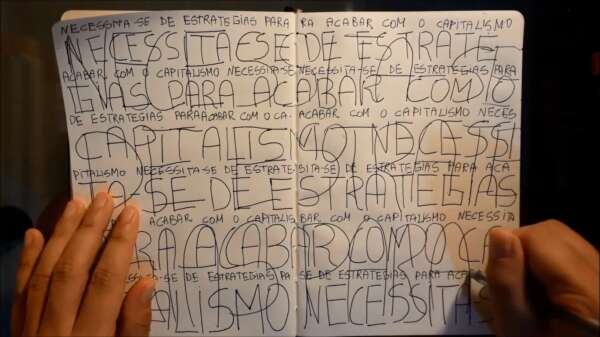 NECESSITA-SE DE ESTRATEGIAS PARA RA ACABAR COM O CAPITALISMO
NECESSITA-SE DE ESTRATE
ACABAR COM O CAPITALISMO NECESSITA-SE NECESSITA-SE DE ESTRATEGIAS PARA
GIAS PARA ACABAR COM O
DE ESTRATEGIAS PARA ACABAR COM O CA- ACABAR COM O CAPITALISMO NECES
CAPITALISMO NECESSI
PITALISMO NECESSITA-SE DE ESTRATE SITA-SE DE ESTRATEGIAS PARA ACA
TA-SE DE ESTRATEGIAS
ACABAR COM O CAPITALIS BAR COM O CAPITALISMO NECESSITA
ARA ACABAR COM O CA
SSITA-SE DE ESTRATEGIAS PA SE DE ESTRATEGIAS PARA ACABA
ALISMO NECESSITAS